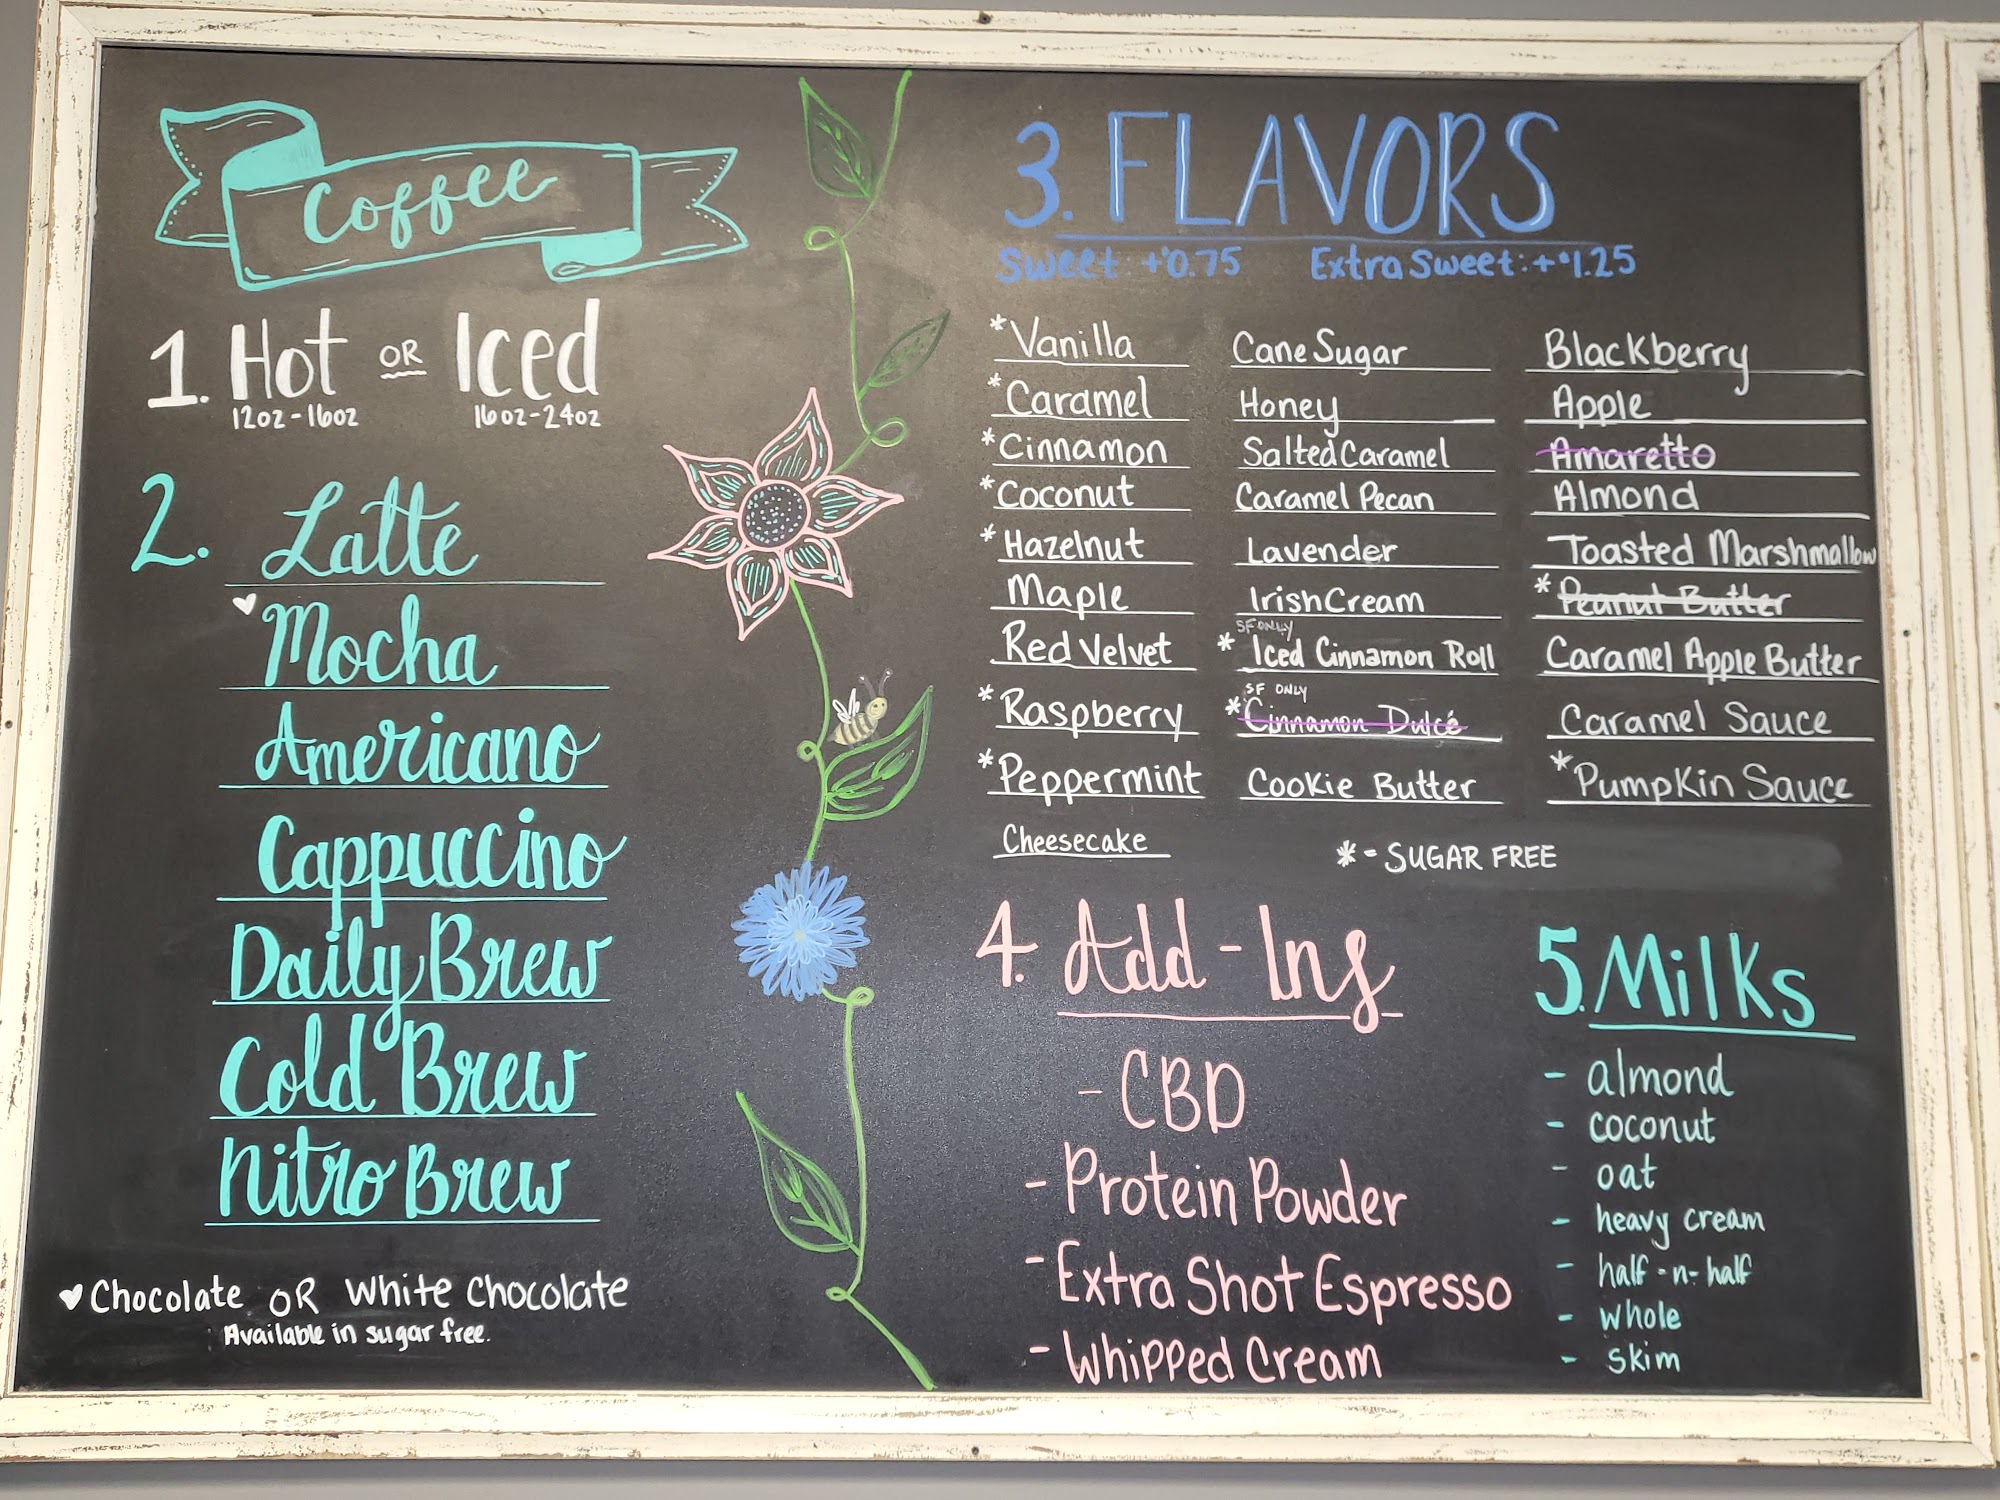 Coffee
1. Hot OR Iced
12oz-16oz 16oz-24oz
2. Latte
♥ Mocha
Americano
Cappuccino
Daily Brew
Cold Brew
Nitro Brew
♥ Chocolate OR White Chocolate
Available in sugar free.
3. FLAVORS
Sweet: +$0.75 Extra Sweet: +$1.25
*Vanilla
*Caramel
*Cinnamon
*Coconut
*Hazelnut
Maple
Red Velvet
*Raspberry
*Peppermint
Cheesecake
Cane Sugar
Honey
Salted Caramel
Caramel Pecan
Lavender
Irish Cream
SF ONLY
*Iced Cinnamon Roll
SF ONLY
*Cinnamon Dulcé
Cookie Butter
Blackberry
Apple
Amaretto
Almond
Toasted Marshmallow
*Peanut Butter
Caramel Apple Butter
Caramel Sauce
*Pumpkin Sauce
* - SUGAR FREE
4. Add-Ins
- CBD
- Protein Powder
- Extra Shot Espresso
- Whipped Cream
5. Milks
- almond
- coconut
- oat
- heavy cream
- half-n-half
- whole
- skim